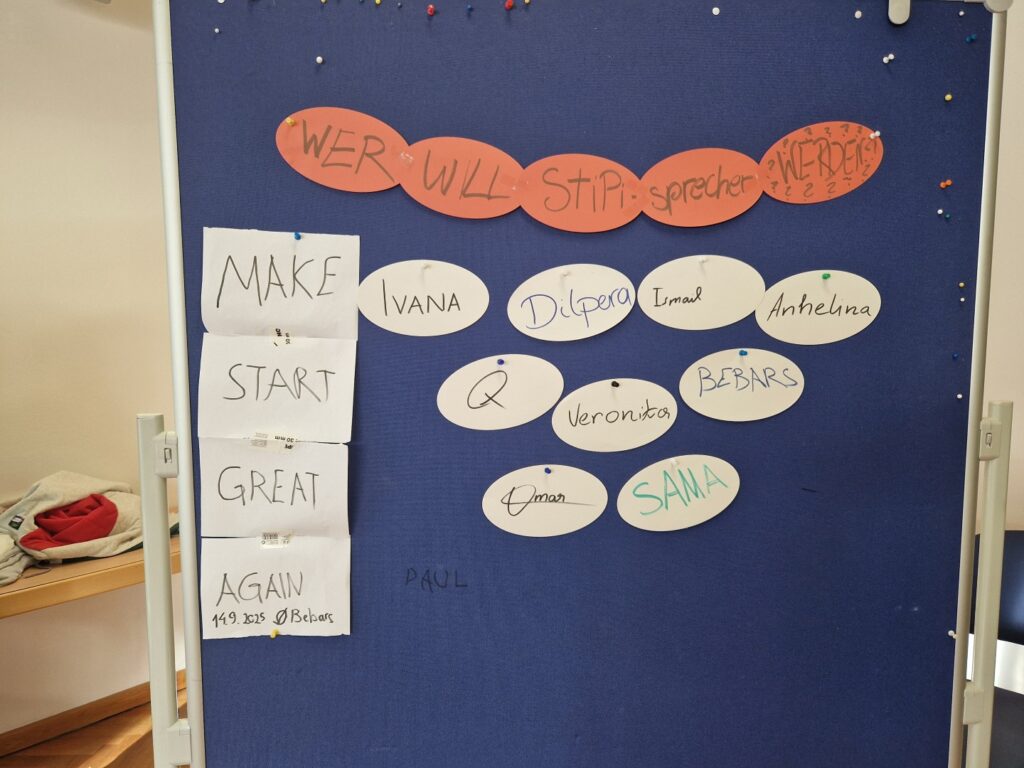 WER WILL STiPi. sprecher ? ? ? ? ? WERDEN ? ? ? ? ? ?
MAKE
START
GREAT
AGAIN
14.9.2025 Ø Bebars
IVANA Dilpera Ismail Anhelina
Q Veronika BEBARS
Omar SAMA
PAUL